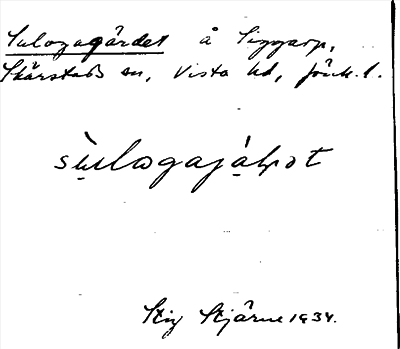 Sulogagärdet å Siggarp,
Skärstads sn, Vista hd, Jönk. l.
sùlogajáḷpət
Stig Stjärne 1934.